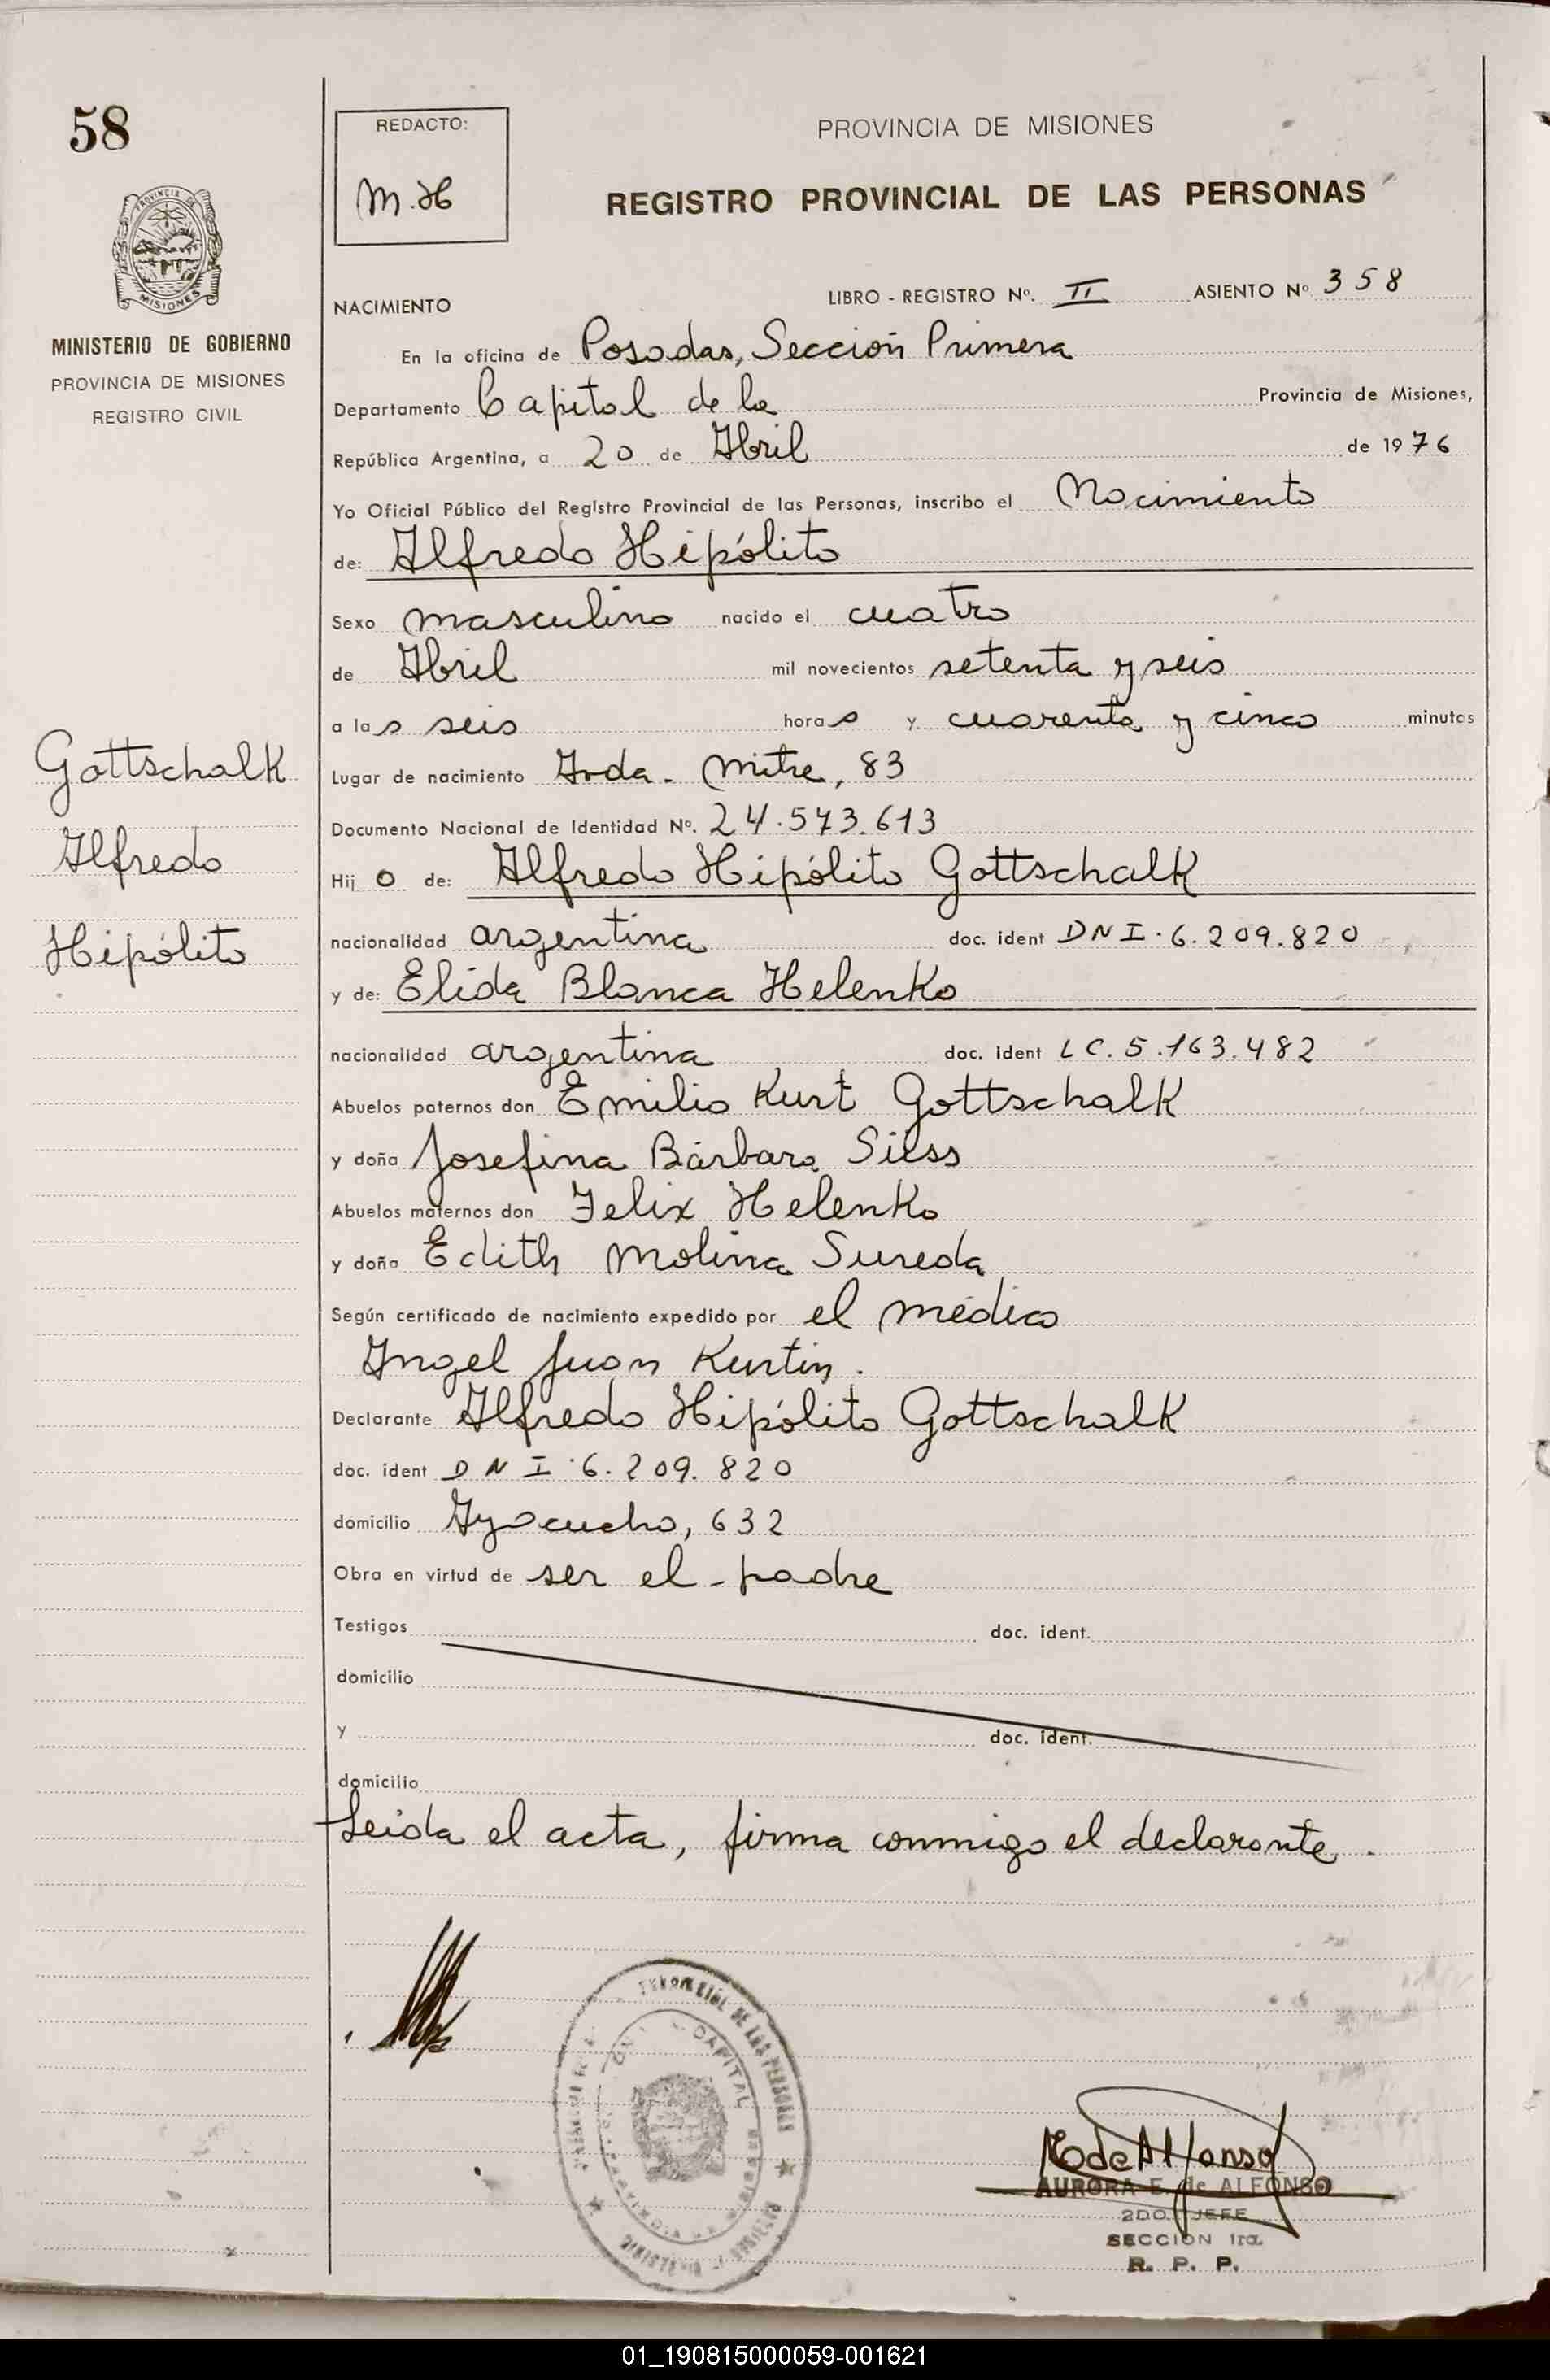 58
PROVINCIA DE
MISIONES
MINISTERIO DE GOBIERNO
PROVINCIA DE MISIONES
REGISTRO CIVIL
Gottschalk
Alfredo
Hipólito
REDACTO:
M.H
PROVINCIA DE MISIONES
REGISTRO PROVINCIAL DE LAS PERSONAS
NACIMIENTO LIBRO - REGISTRO Nº. II ASIENTO Nº 358
En la oficina de Posadas, Sección Primera
Departamento Capital de la Provincia de Misiones,
República Argentina, a 20 de Abril de 1976
Yo Oficial Público del Registro Provincial de las Personas, inscribo el Nacimiento
de: Alfredo Hipólito
Sexo masculino nacido el cuatro
de Abril mil novecientos setenta y seis
a las seis horas y cuarenta y cinco minutos
Lugar de nacimiento Avda. Mitre, 83
Documento Nacional de Identidad Nº. 24.573.613
Hijo de: Alfredo Hipólito Gottschalk
nacionalidad argentina doc. ident DNI. 6.209.820
y de: Elida Blanca Helenko
nacionalidad argentina doc. ident LC. 5.163.482
Abuelos paternos don Emilio Kurt Gottschalk
y doña Josefina Bárbara Siess
Abuelos maternos don Felix Helenko
y doña Edith Molina Sureda
Según certificado de nacimiento expedido por el médico
Angel Juan Kurtin.
Declarante Alfredo Hipólito Gottschalk
doc. ident DNI. 6.209.820
domicilio Ayacucho, 632
Obra en virtud de ser el padre
Testigos doc. ident.
domicilio
y doc. ident.
domicilio
Leida el acta, firma conmigo el declarante.
PROVINCIAL DE LAS PERSONAS
CAPITAL
E de Alfonso
AURORA E. de ALFONSO
2DO. JEFE
SECCION 1ra.
R. P. P.
01_190815000059-001621